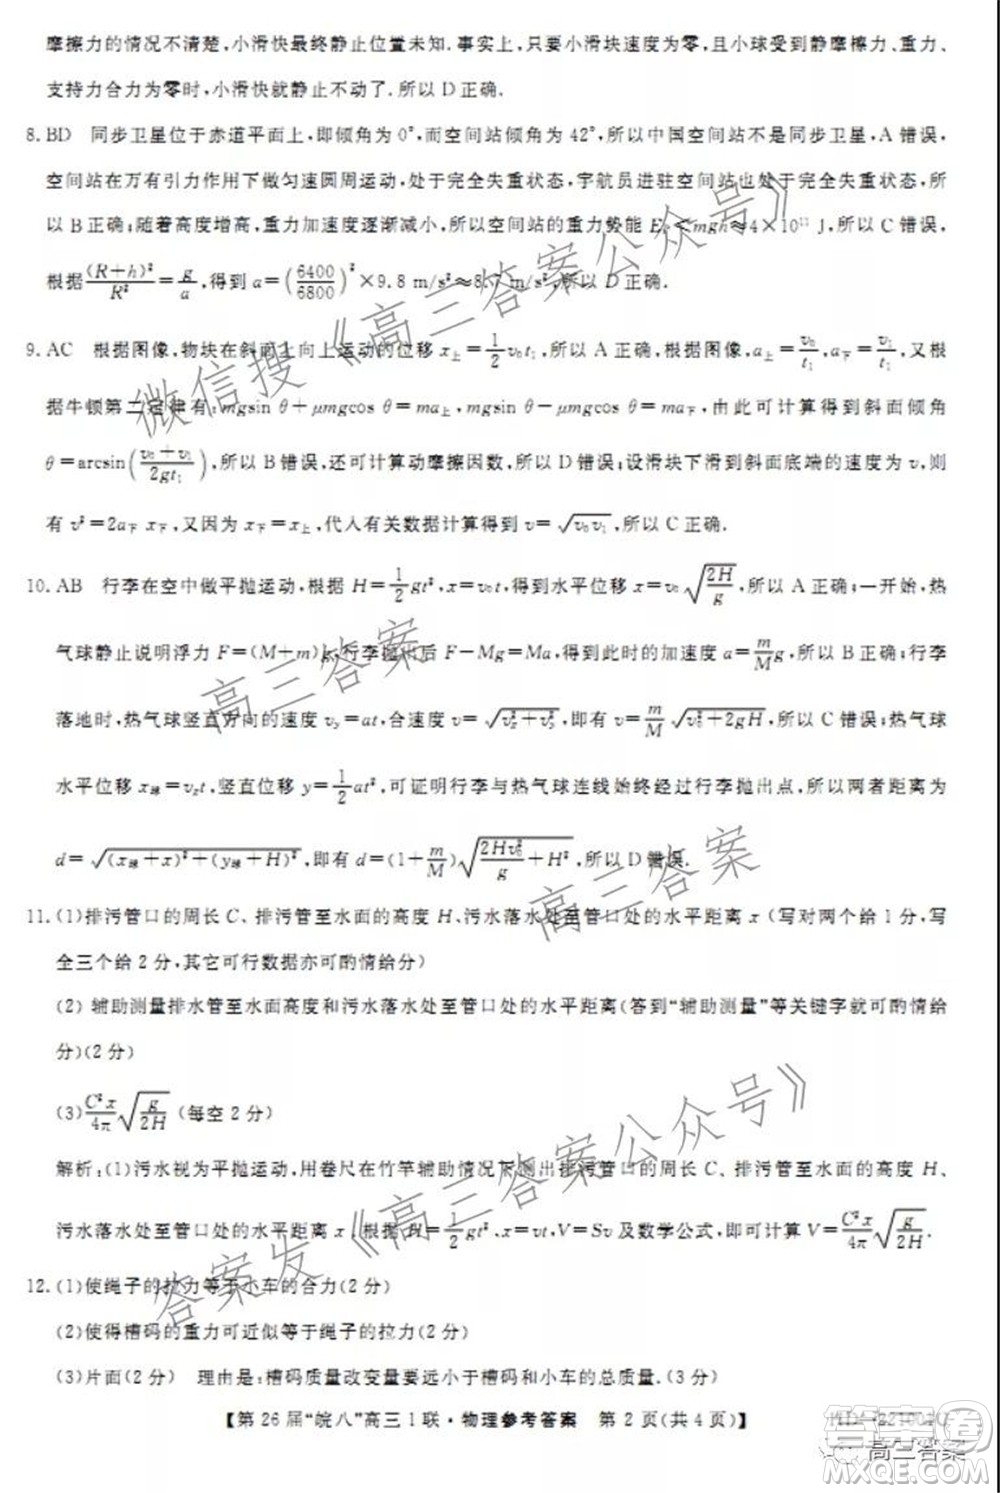 摩擦力的情况不清楚,小滑快最终静止位置未知.事实上,只要小滑块速度为零,且小球受到静摩檫力、重力、
支持力合力为零时,小滑快就静止不动了.所以 D 正确.
8. BD 同步卫星位于赤道平面上,即倾角为 0°,而空间站倾角为 42°,所以中国空间站不是同步卫星,A 错误,
空间站在万有引力作用下做匀速圆周运动,处于完全失重状态,宇航员进驻空间站也处于完全失重状态,所
以 B 正确;随着高度增高,重力加速度逐渐减小,所以空间站的重力势能 Ep<mgh≈4×10¹¹ J,所以 C 错误,
根据(R+h)²/R²=g/a,得到 a=(6400/6800)²×9.8 m/s²≈8.7 m/s²,所以 D 正确.
9. AC 根据图像,物块在斜面上向上运动的位移 x上=1/2 v₀t₁,所以 A 正确,根据图像,a上=v₀/t₁,a下=v₁/t₁,又根
据牛顿第二定律有:mgsin θ+μmgcos θ=ma上,mgsin θ-μmgcos θ=ma下,由此可计算得到斜面倾角
θ=arcsin((v₀+v₁)/2gt₁),所以 B 错误,还可计算动摩擦因数,所以 D 错误;设滑块下滑到斜面底端的速度为 v,则
有 v²=2a下 x下,又因为 x下=x上,代入有关数据计算得到 v=√(v₀v₁),所以 C 正确.
10. AB 行李在空中做平抛运动,根据 H=1/2 gt²,x=v₀t,得到水平位移 x=v₀√(2H/g),所以 A 正确;一开始,热
气球静止说明浮力 F=(M+m)g,行李抛出后 F-Mg=Ma,所以得到此时的加速度 a=m/M g,所以 B 正确;行李
落地时,热气球竖直方向的速度 vy=at,合速度=√(vx²+vy²),即有 v=m/M √(v₀²+2gH),所以 C 错误;热气球
水平位移 x球=vxt,竖直位移 y=1/2 at²,可证明行李与热气球连线始终经过行李抛出点,所以两者距离为
d=√((x球+x)²+(y球+H)²),即有 d=(1+m/M)√(2Hv₀²/g+H²),所以 D 错误.
11. (1)排污管口的周长 C、排污管至水面的高度 H、污水落水处至管口处的水平距离 x (写对两个给 1 分,写
全三个给 2 分,其它可行数据亦可酌情给分)
(2) 辅助测量排水管至水面高度和污水落水处至管口处的水平距离(答到“辅助测量”等关键字就可酌情给
分)(2 分)
(3) C²x/4π √(g/2H) (每空 2 分)
解析:(1)污水视为平抛运动,用卷尺在竹竿辅助情况下测出排污管口的周长 C、排污管至水面的高度 H、
污水落水处至管口处的水平距离 x,根据 H=1/2 gt²,x=vt,V=Sv 及数学公式,即可计算 V=C²x/4π √(g/2H).
12. (1)使绳子的拉力等于小车的合力(2 分)
(2)使得槽码的重力可近似等于绳子的拉力(2 分)
(3)片面(2 分) 理由是:槽码质量改变量要远小于槽码和小车的总质量.(3 分)
【第 26 届“皖八”高三 1 联·物理参考答案 第 2 页(共 4 页)】
微信搜《高三答案公众号》
高三答案
高三答案
答案发《高三答案公众号》
高三答案
答案圈
MXQE.COM